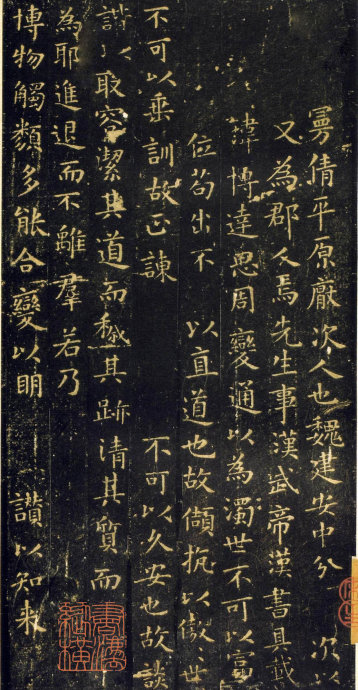 曼倩平原厭次人也魏建安中分 次以
又為郡人焉先生事漢武帝漢書具載
瑋博達思周變通以為濁世不可以富
位苟出不 以直道也故頡頏以傲世
不可以垂訓故正諫 不可以久安也故談
諧以取容潔其道而穢其跡清其質而
為耶進退而不離羣若乃
博物觸類多能合變以明 讚以知来